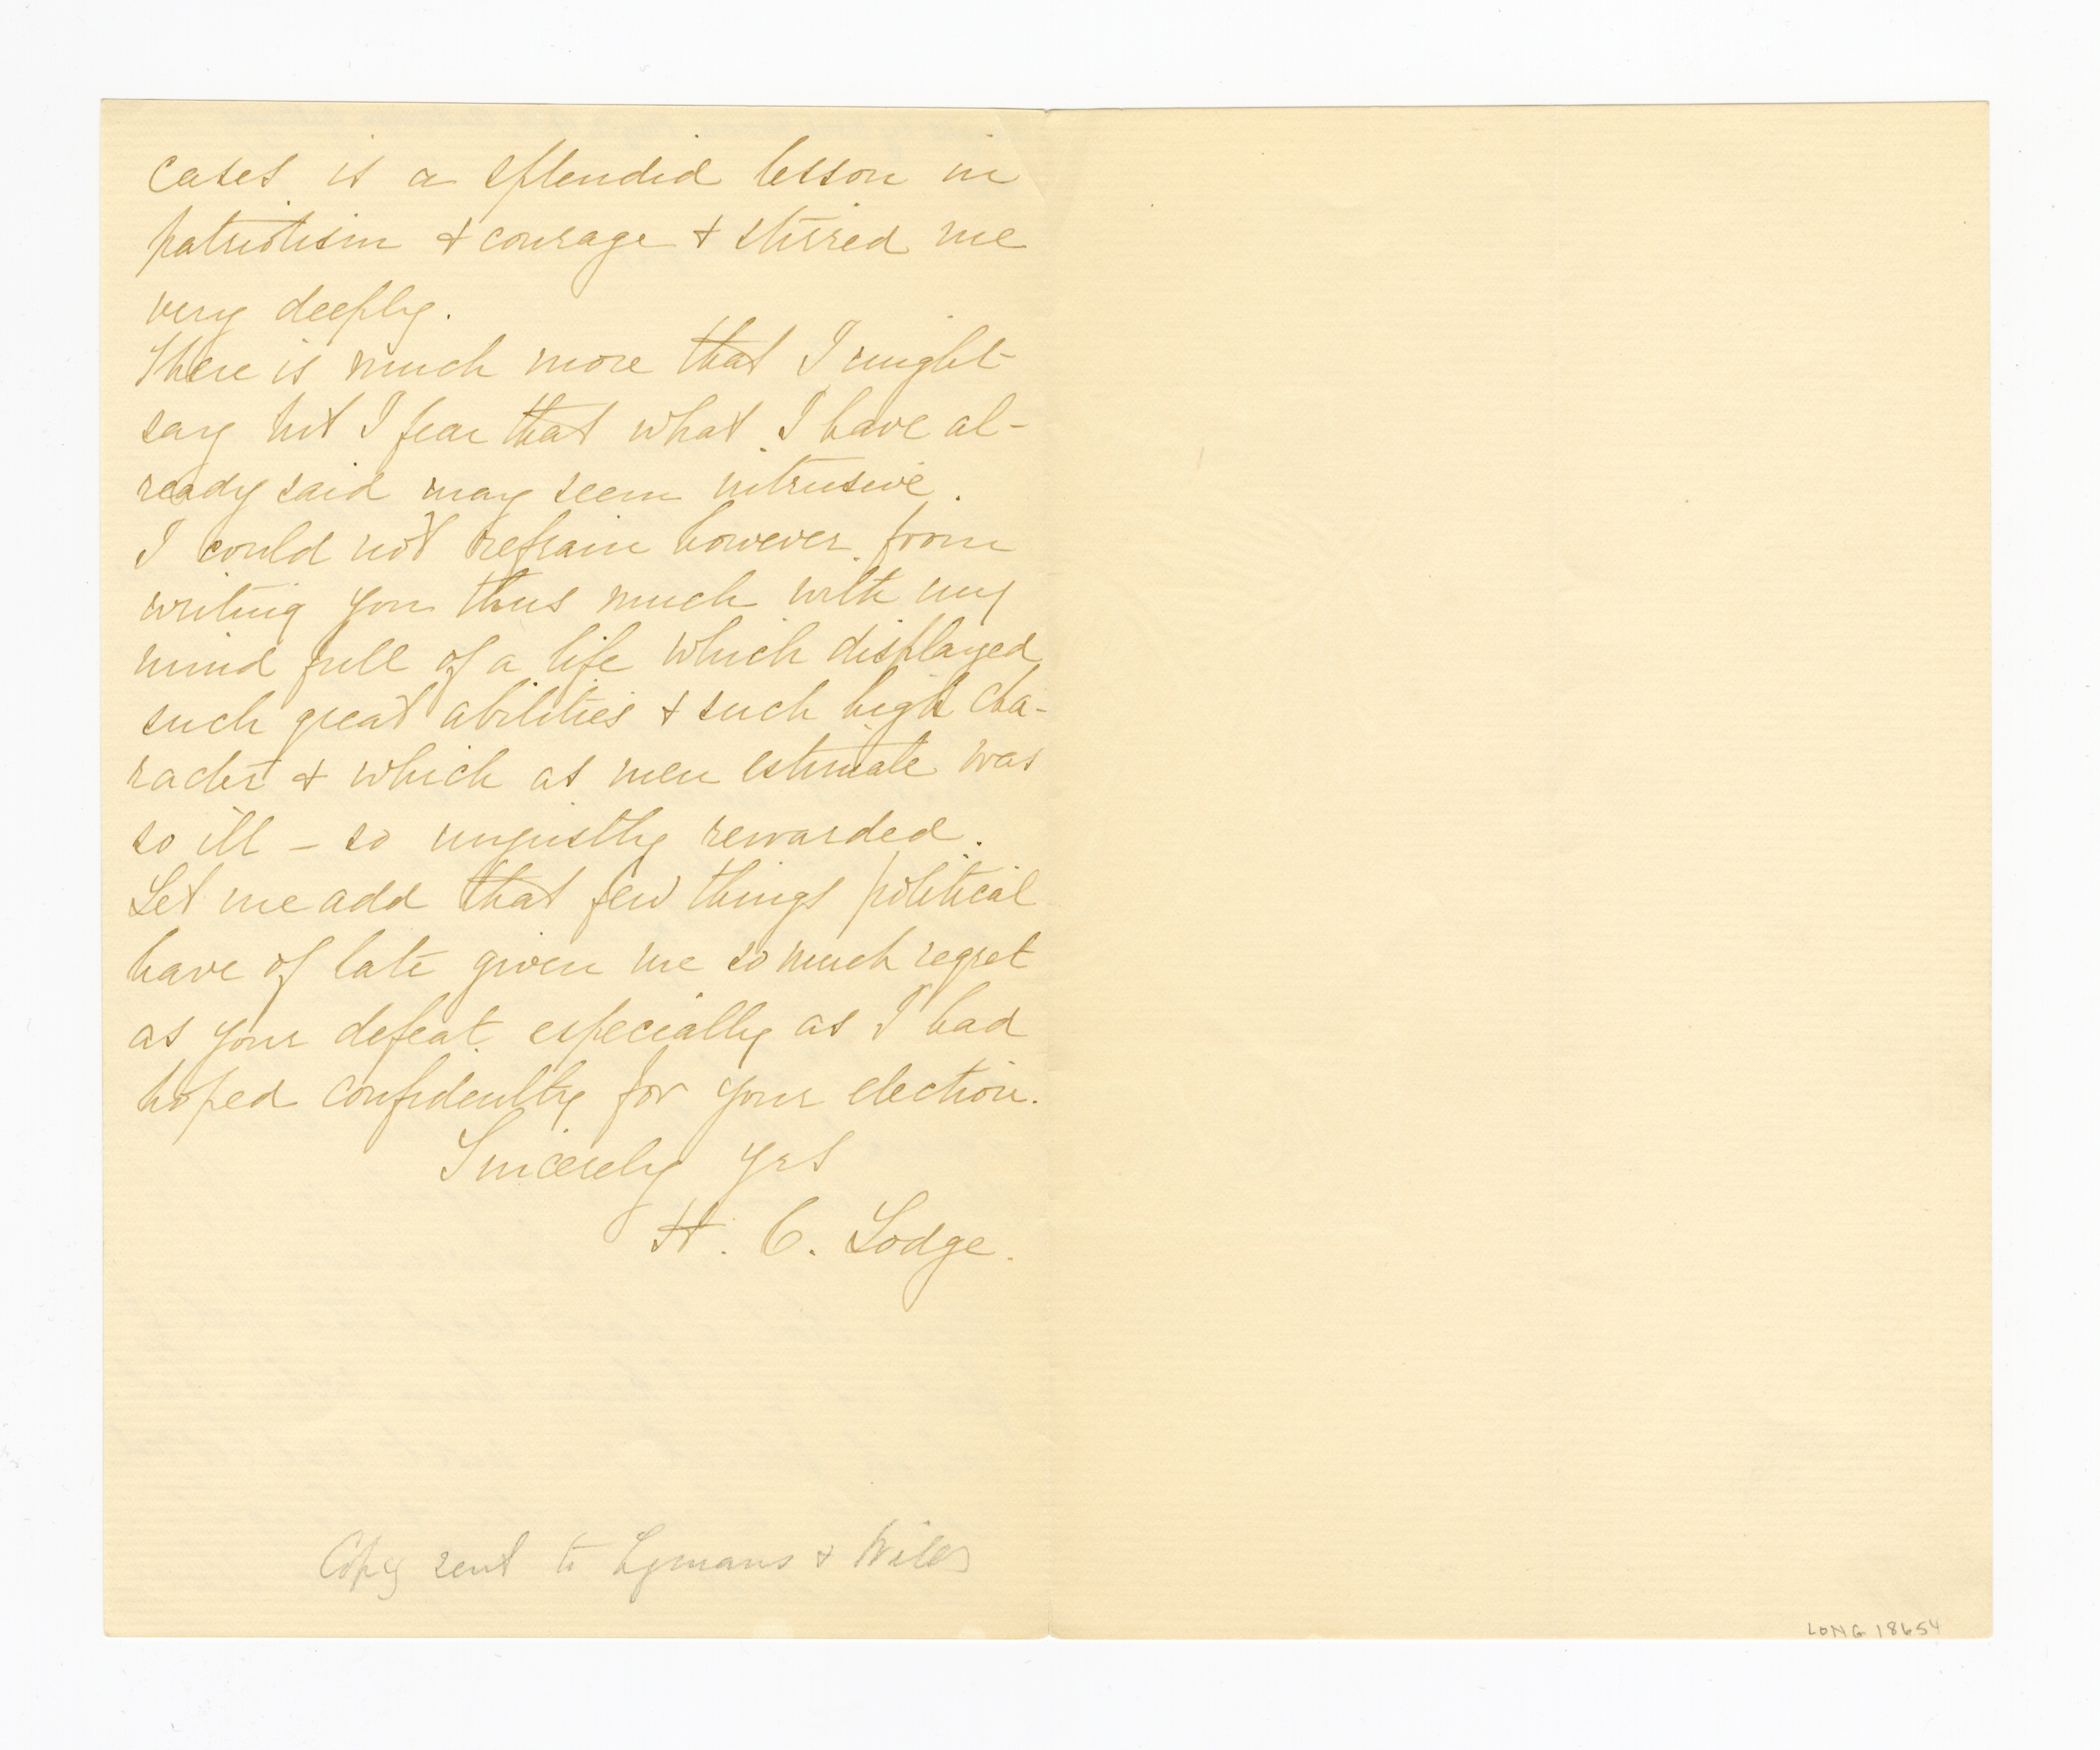 cases is a splendid lesson in
patriotism & courage & stirred me
very deeply.
There is much more that I might
say but I fear that what I have al-
ready said may seem intrusive.
I could not refrain however from
writing you thus much with my
mind full of a life which displayed
such great abilities & such high cha-
racter & which as men estimate was
so ill - so unjustly rewarded.
Let me add that few things political
have of late given me so much regret
as your defeat especially as I had
hoped confidently for your election.
Sincerely yrs
H. C. Lodge.
Copy sent to Lymans &
LONG 18654